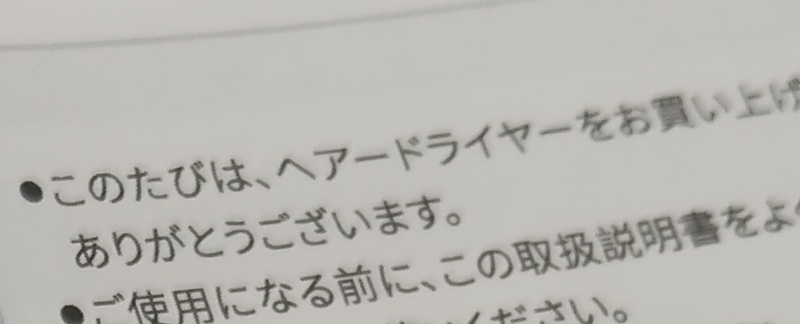 ●このたびは、ヘアードライヤーをお買い上げ
ありがとうございます。
●ご使用になる前に、この取扱説明書をよ
ください。